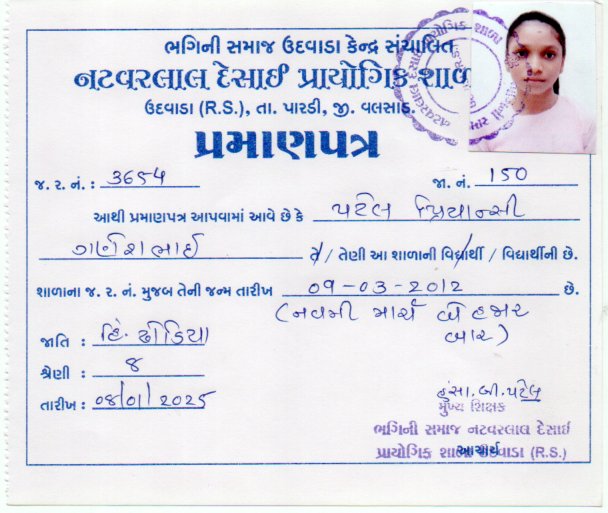 ભગિની સમાજ ઉદવાડા કેન્દ્ર સંચાલિત
નટવરલાલ દેસાઈ પ્રાયોગિક શાળ
ઉદવાડા (R.S.), તા. પારડી, જી. વલસાડ.
પ્રમાણપત્ર
જ. ર. નં. : 3654 જા. નં. 150
આથી પ્રમાણપત્ર આપવામાં આવે છે કે પટેલ પ્રિયાન્સી
ગણેશભાઈ તે / તેણી આ શાળાની વિદ્યાર્થી / વિદ્યાર્થીની છે.
શાળાના જ. ર. નં. મુજબ તેની જન્મ તારીખ 09-03-2012 છે.
(નવમી માર્ચ બે હજાર
બાર)
જાતિ : હિ. ઢોડિયા
શ્રેણી : 8
તારીખ : 08/01/2025
હંસા.બી.પટેલ
મુખ્ય શિક્ષક
ભગિની સમાજ નટવરલાલ દેસાઈ
પ્રાયોગિક શાળા ઉદવાડા (R.S.)
આચાર્ય